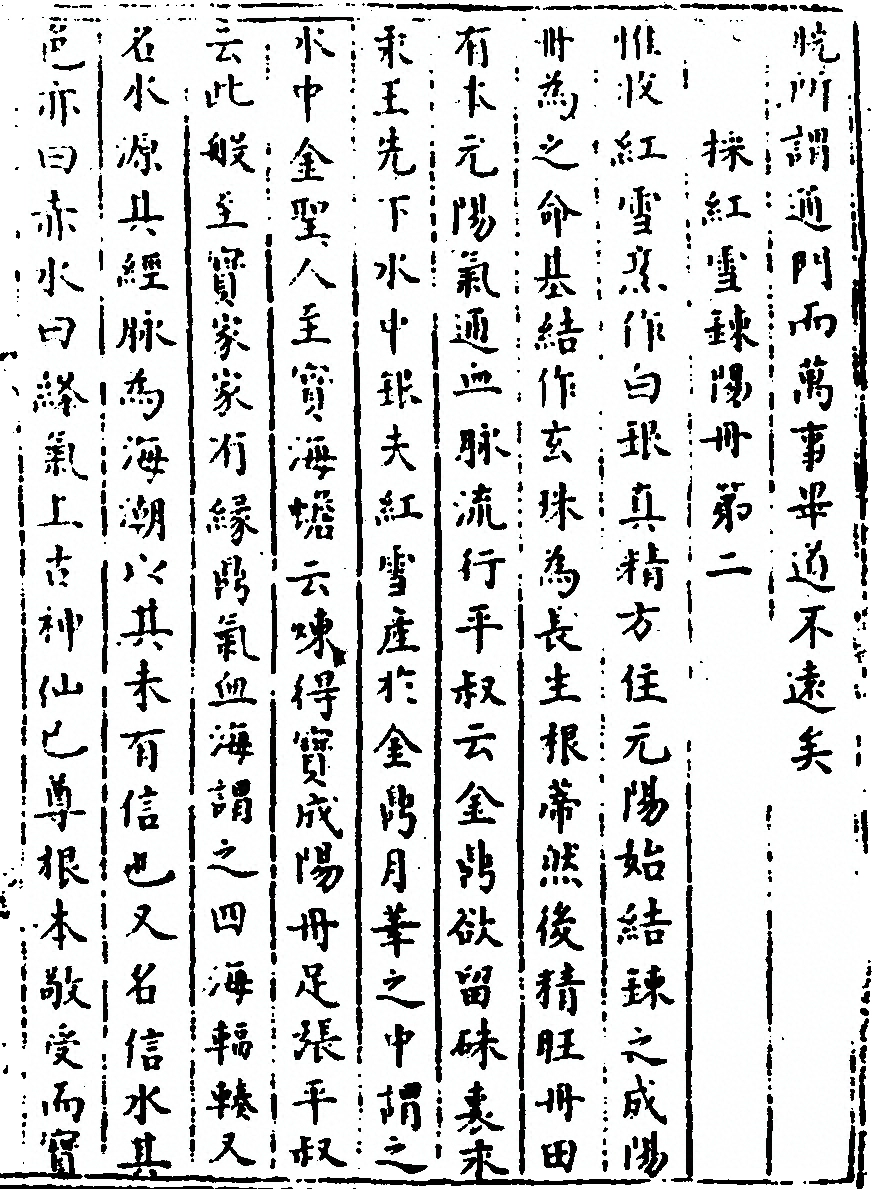 恍所謂通一門而萬事畢道不遠矣
採紅雪鍊陽丹第二
惟收紅雪煮作白銀真精方住元陽始結鍊之成陽
丹為之命基結作玄珠為長生根蒂然後精旺丹田
有本元陽氣通血脉流行平叔云金鼎欲留硃裏汞
玉先下水中銀夫紅雪產於金鼎月華之中謂之
水中金聖人至寶海蟾云煉得寶成陽丹足張平叔
云此般至寶家家有緣鼎氣血海謂之四海輻輳又
名水源其經脉為海潮以其未有信也又名信水其
色亦曰赤水曰絳氣上古神仙已尊根本敬受而寶